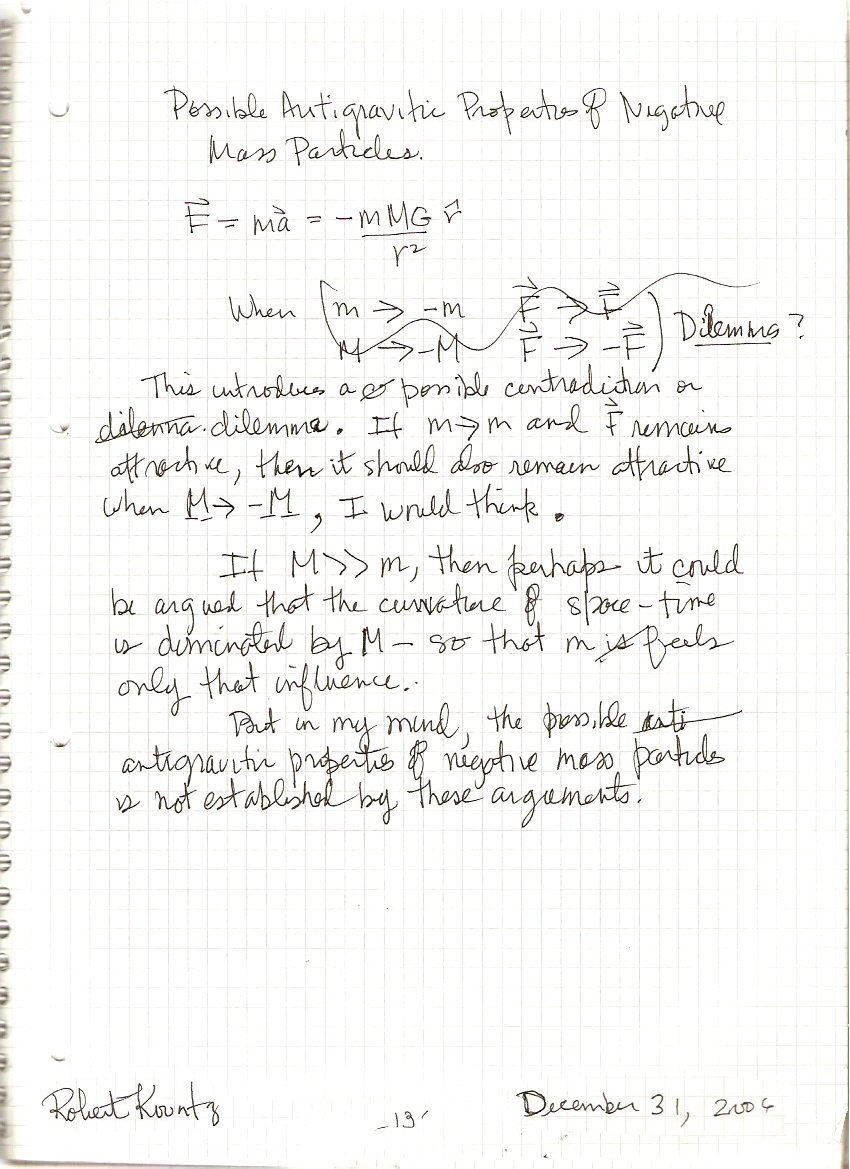 Possible Antigravitic Properties of Negative
Mass Particles.
F⃗ = ma⃗ = -mMG r̂
r²
When (m → -m F⃗ → F⃗
M → -M F⃗ → -F⃗) Dilemma?
This introduces a possible contradiction or
dilemma. dilemma. If m→m and F⃗ remains
attractive, then it should also remain attractive
when M → -M, I would think.
If M>>m, then perhaps it could
be argued that the curvature of space-time
is dominated by M - so that m is feels
only that influence.
But in my mind, the possible anti
antigravitic properties of negative mass particles
is not established by these arguments.
Robert Kountz
-19-
December 31, 2006